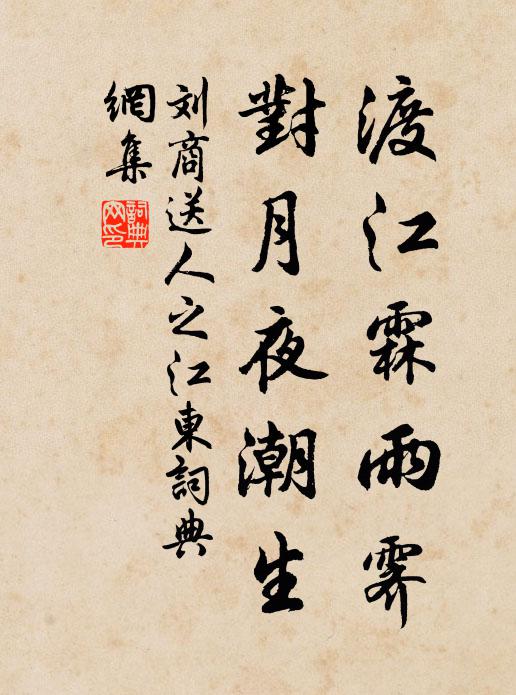 渡江霖雨霽
對月夜潮生
刘商送人之江東詞典
網集
詞典
网印